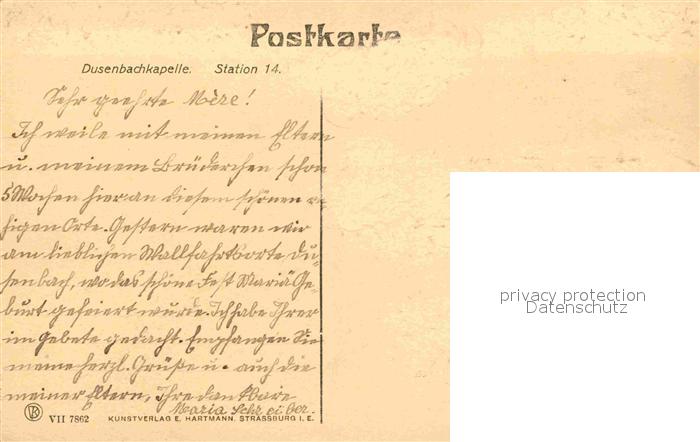 Postkarte
Dusenbachkapelle. Station 14.
Sehr geehrte Mère!
Ich weile mit meinen Eltern
u. meinem Brüderchen schon
5 Wochen hier an diesem schönen ru-
higen Orte. Gestern waren wir
am lieblichen Wallfahrtsorte Du-
senbach, wo das schöne Fest Mariä Ge-
burt gefeiert wurde. Ich habe Ihrer
im Gebete gedacht. Empfangen Sie
meine herzl. Grüße u. auch die
meiner Eltern, Ihre dankbare
Maria
VII 7862 KUNSTVERLAG E. HARTMANN, STRASSBURG I. E.
privacy protection
Datenschutz